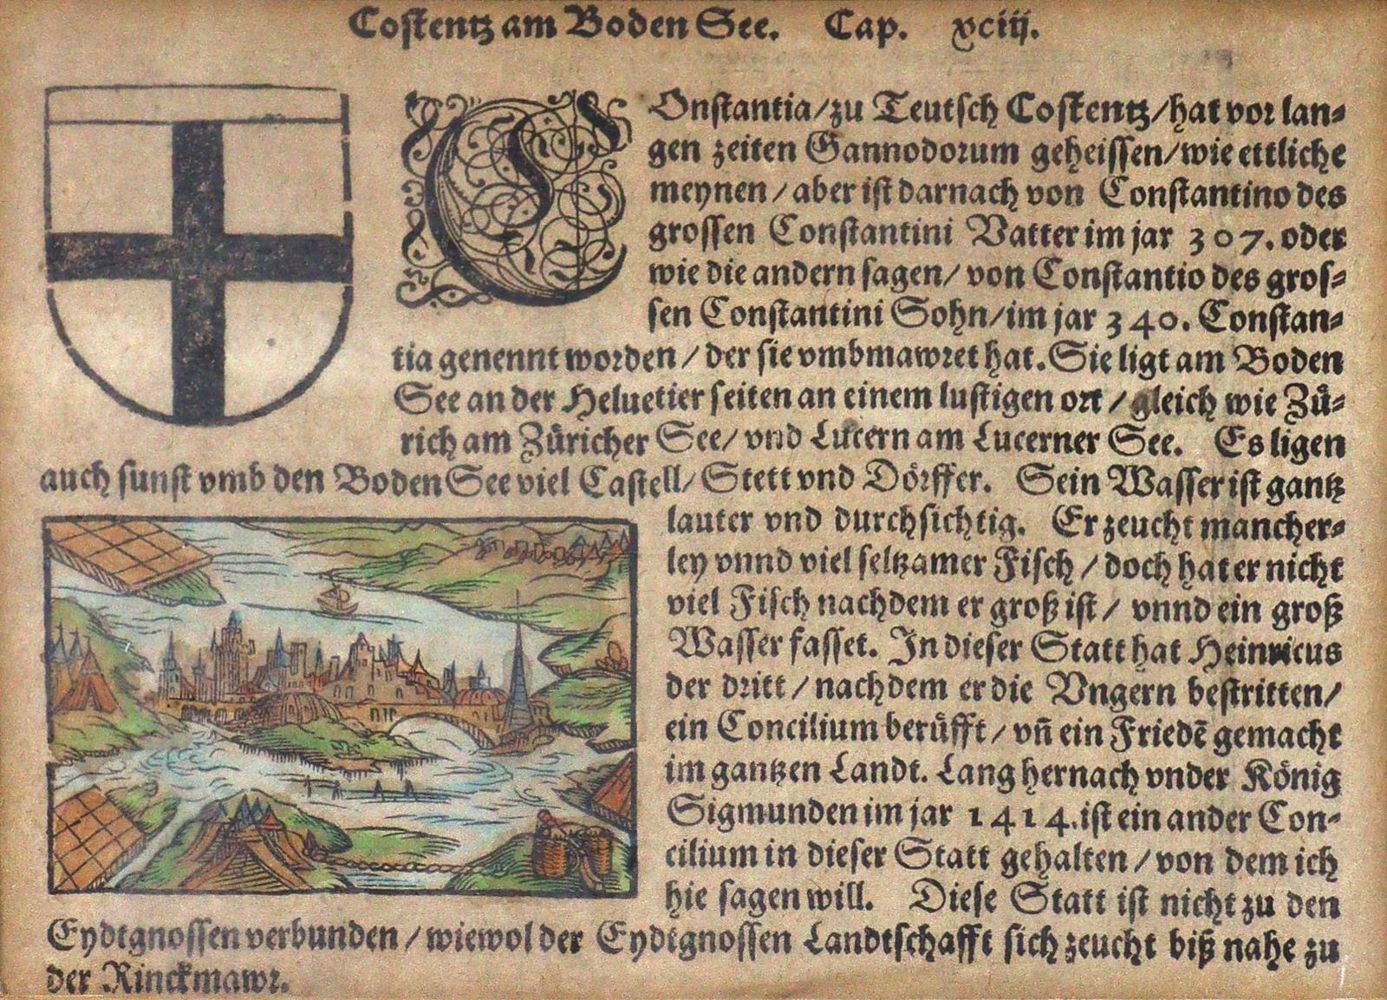 Costentz am Boden See. Cap. xciij.
COnstantia/zu Teutsch Costentz/hat vor lan⸗
gen zeiten Gannodorum geheissen/wie ettliche
meynen/aber ist darnach von Constantino des
grossen Constantini Vatter im jar 307. oder
wie die andern sagen/von Constantio des gros⸗
sen Constantini Sohn/im jar 340. Constan⸗
tia genennt worden/der sie vmbmawret hat. Sie ligt am Boden
See an der Heluetier seiten an einem lustigen ort/gleich wie Zů⸗
rich am Zůricher See/vnd Lucern am Lucerner See. Es ligen
auch sunst vmb den Boden See viel Castell/Stett vnd Dörffer. Sein Wasser ist gantz
lauter vnd durchsichtig. Er zeucht mancher⸗
ley vnnd viel seltzamer Fisch/doch hat er nicht
viel Fisch nachdem er groß ist/vnnd ein groß
Wasser fasset. In dieser Statt hat Heinricus
der dritt/nachdem er die Vngern bestritten/
ein Concilium berůfft/vñ ein Friedẽ gemacht
im gantzen Landt. Lang hernach vnder König
Sigmunden im jar 1414. ist ein ander Con⸗
cilium in dieser Statt gehalten/von dem ich
hie sagen will. Diese Statt ist nicht zu den
Eydtgnossen verbunden/wiewol der Eydtgnossen Landtschafft sich zeucht biß nahe zu
der Rinckmawr.